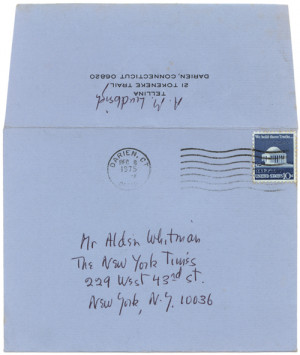 A. M. Lindbergh
TELLINA
21 TOKENEKE TRAIL
DARIEN, CONNECTICUT 06820
DARIEN, CT
1975
We hold these Truths...
Mr Alden Whitman
The New York Times
229 West 43rd st.
New York, N.Y. 10036